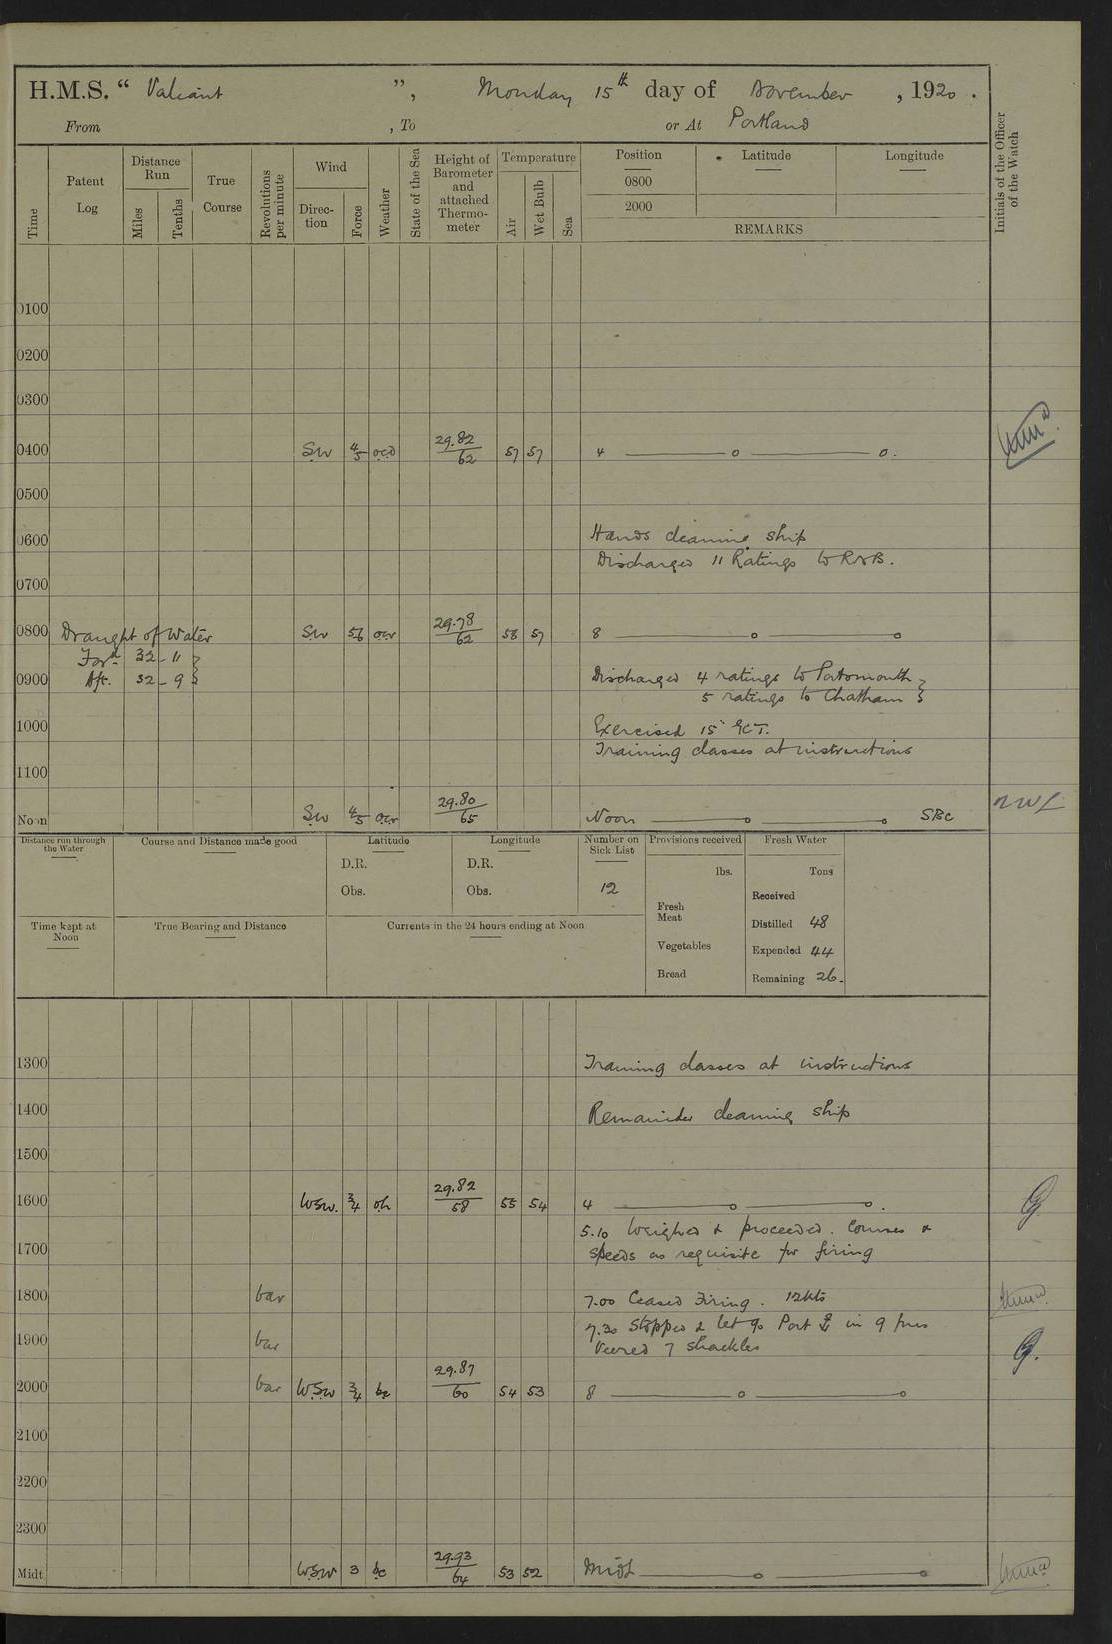 H.M.S. " Valiant ", Monday 15th day of November , 1920 .
From , To or At Portland
Time
Patent Log
Distance Run
Miles
Tenths
True Course
Revolutions per minute
Wind
Direc-tion
Force
Weather
State of the Sea
Height of Barometer and attached Thermo-meter
Temperature
Air
Wet Bulb
Sea
Position Latitude Longitude
0800
2000
REMARKS
Initials of the Officer of the Watch
0100
0200
0300
0400 SW 4/5 ocd 29.82/62 57 57 4 o o.
0500
0600 Hands cleaning ship
Discharged 11 Ratings to RNB.
0700
0800 Draught of Water SW 56 ocr 29.78/62 58 57 8 o o
Ford 32 - 11
0900 Aft. 32 - 9 Discharged 4 ratings to Portsmouth
5 ratings to Chatham
1000 Exercised 15" GCT.
Training classes at instructions
1100
Noon SW 4/5 ocr 29.80/65 Noon o o SBC
Distance run through the Water
Course and Distance made good
Latitude
D.R.
Obs.
Longitude
D.R.
Obs.
Number on Sick List
12
Provisions received
lbs.
Fresh Meat
Vegetables
Bread
Fresh Water
Tons
Received
Distilled 48
Expended 44
Remaining 26.
Time kept at Noon
True Bearing and Distance
Currents in the 24 hours ending at Noon
1300 Training classes at instructions
1400 Remainder cleaning ship
1500
1600 WSW. 3/4 oh 29.82/58 55 54 4 o o.
5.10 Weighed & proceeded. Courses &
1700 speeds as requisite for firing
1800 bar 7.00 Ceased Firing. 12kts
7.30 Stopped & let go Port ⚓ in 9 fms
1900 bar Veered 7 shackles
2000 bar WSW 3/4 bc 29.87/60 54 53 8 o o
2100
2200
2300
Midt. WSW 3 bc 29.93/64 53 52 Midt o o